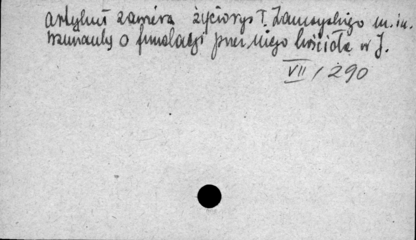 artykuł zawiera życiorys T. Zamoyskiego m.in.
wzmianky o fundacji przez niego kościoła w J.
VII / 290